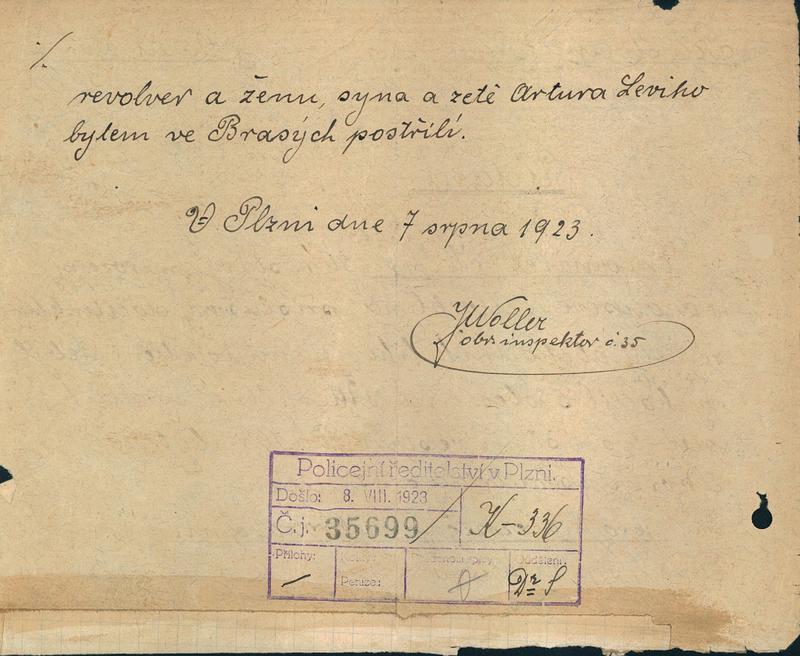 ·/.
revolver a ženu, syna a zetě Artura Leviho
bylem ve Brasých postřílí.
V Plzni dne 7 srpna 1923.
JWoller
obv. inspektor č. 35
Policejní ředitelství v Plzni.
Došlo: 8. VIII. 1923
Č. j. 35699/ K-336
Přílohy: Oddělení:
Peníze: Dr S